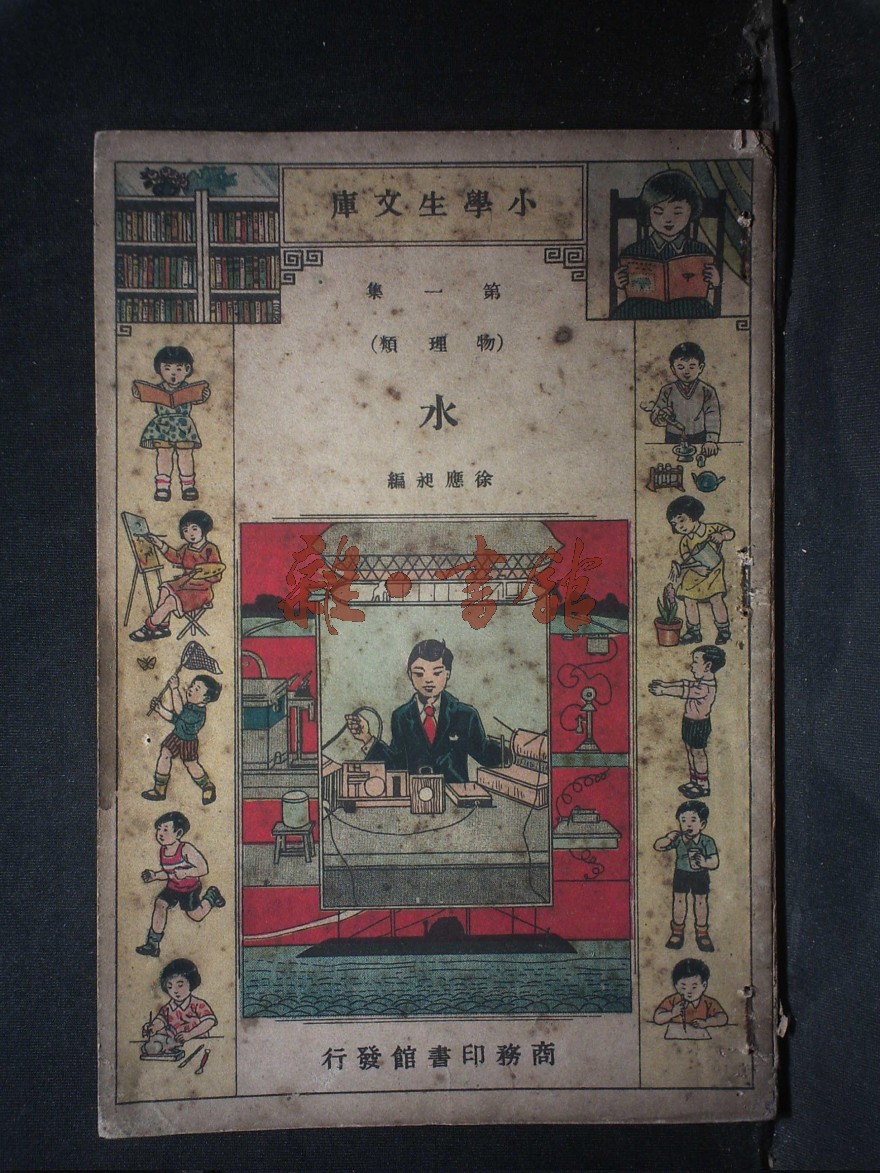 小學生文庫
第一集
(物理類)
水
徐應昶編
雜·書館
商務印書館發行